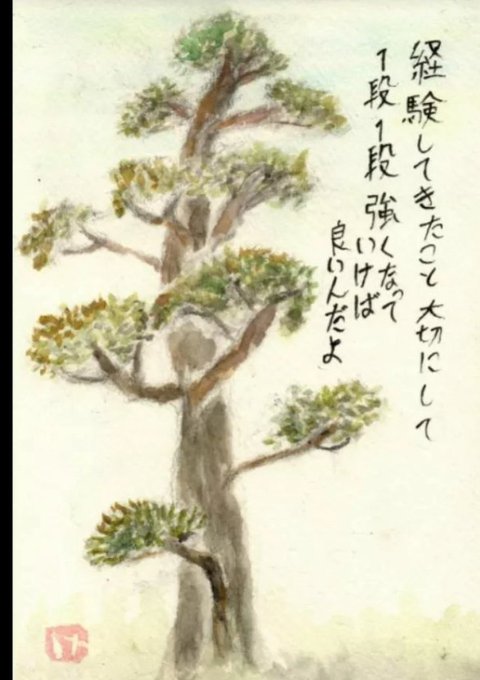 経験してきたこと 大切にして
1段1段 強くなって
いけば
良いんだよ
け